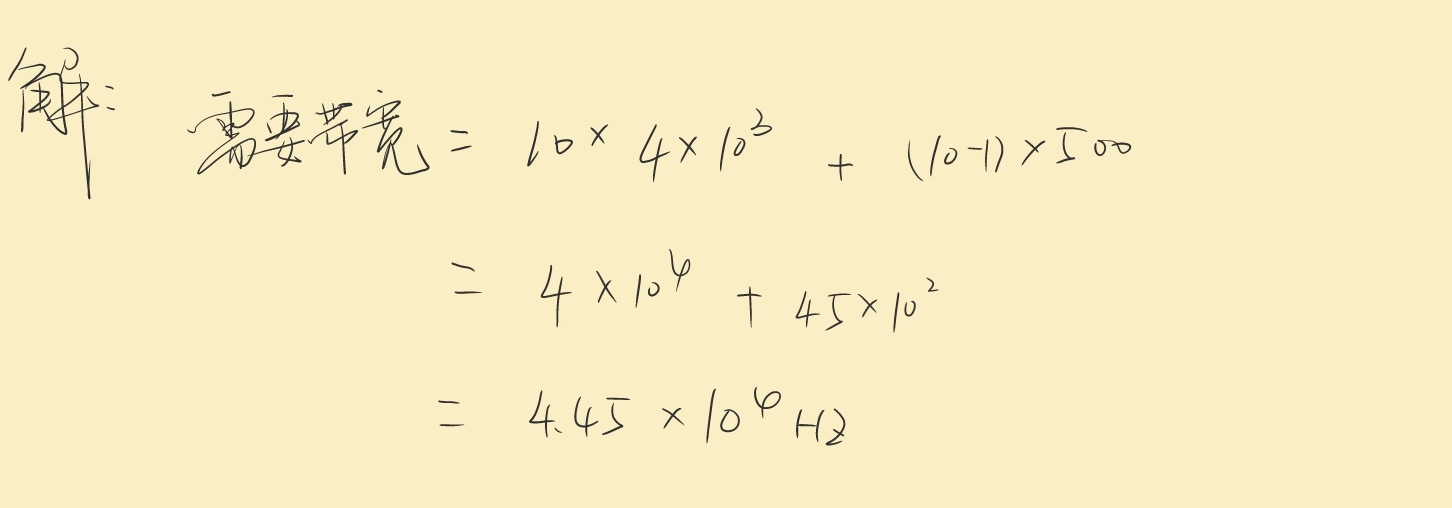 解: 需要带宽 = 10 × 4 × 10³ + (10-1) × 500
= 4 × 10⁴ + 45 × 10²
= 4.45 × 10⁴ Hz